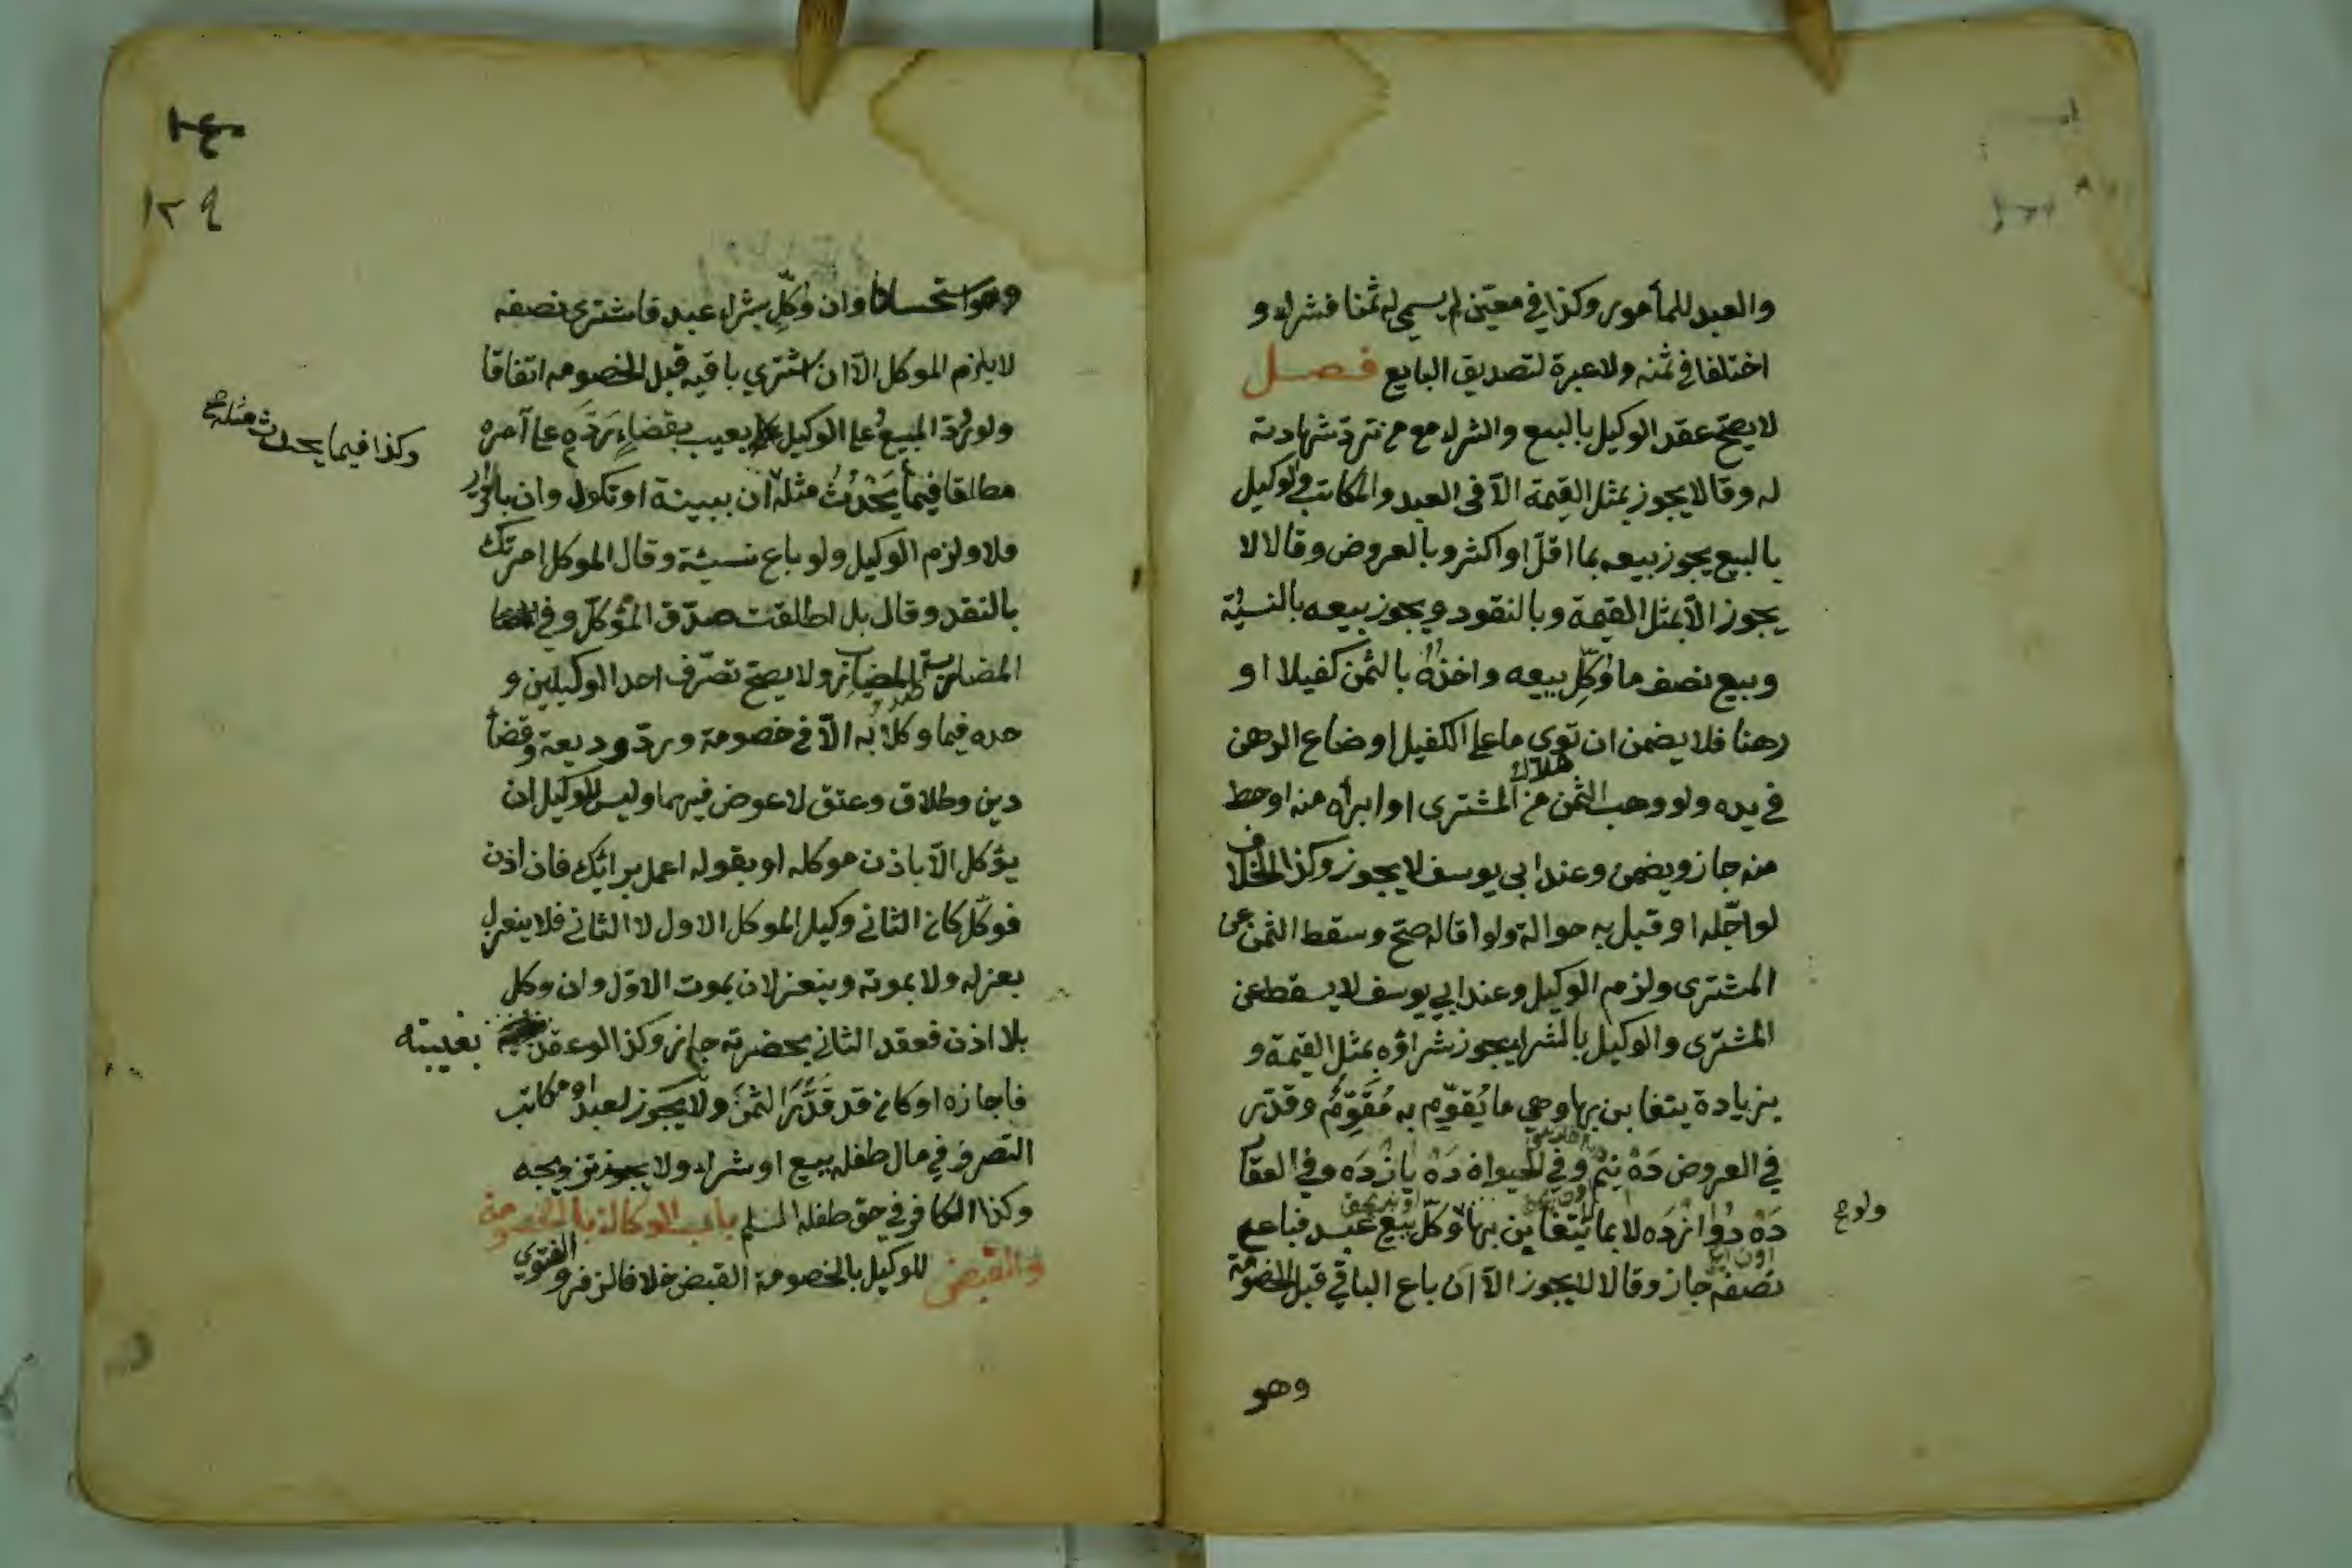 والعبد للمأمور وكذا في معيّن لم يسمي له ثمنا فشراه و
اختلفا في ثمنه ولا عبرة لتصديق البايع فصل
لا يصحّ عقد الوكيل بالبيع والشراء مع من تردّ شهادته
له وقالا يجوز بمثل القيمة الّا في العبد والمكاتب والوكيل
بالبيع يجوز بيعه بما اقلّ او اكثر وبالعروض وقالا لا
يجوز الّا بمثل القيمة وبالنقود ويجوز بيعه بالنسيئة
وبيع نصف ما وُكِّل ببيعه واخذُهُ بالثمن كفيلا او
رهنا فلا يضمن ان توى ما على الكفيل او ضاع الرهن
هلاك
في يده ولو وهب الثمن من المشترى او ابرأه منه او حط
منه جاز ويضمن وعند ابي يوسف لا يجوز وكذا الخلاف
لو اجّله او قبل به حوالة ولو اقاله صحّ وسقط الثمن عن
المشترى ولزم الوكيل وعند ابي يوسف لا يسقط عن
المشترى والوكيل بالشرا يجوز شراؤه بمثل القيمة و
بزيادة يتغابن بها وهي ما يُقوّم به مُقَوِّمٌ وقدّر
في العروض دَهْ نِيمْ وفي الحيوان دَهْ يازْدَه وفي العقار
دَهْ دُوازْدَه لا بما يتغابن بها وُكّل ببيع عبد فباع
ولو صح
نصفه جاز وقالا لا يجوز الّا ان باع الباقي قبل الخصومة
وهو
١٢٩
وهو استحسانا وان وُكِّل بشراء عبد فاشترى نصفه
لا يلزم الموكل الّا ان اشتري باقيه قبل الخصومه اتفاقا
ولو رُدّ المبيعُ على الوكيل بعيب بقضاءٍ رَدّه على آمره
وكذا فيما يحدث مثله صح
مطلقا فيما يَحْدُثُ مثلهُ ان ببينة او نكول وان باقرار
فلا ولزم الوكيل ولو باع نسيئة وقال الموكل امرتك
بالنقد وقال بل اطلقت صدّق المُوكّل وفي
المضاربة المضارب ولا يصحّ تصرّف احد الوكيلين و
حده فيما وكلا به الّا في خصومة وردّ وديعة وقضأ
دين وطلاق وعتق لا عوض فيهما وليس للوكيل ان
يؤكل الّا باذن موكله او بقوله اعمل برائك فان اذن
فوكّل كان الثاني وكيل الموكل الاول لا الثاني فلا ينعزل
بعزله ولا بموته وينعزلان بموت الاوّل وان وكل
بلا اذن فعقد الثاني بحضرته جاز وكذا لو عقد بغيبته
فاجازه او كان قد قَدَّرَ الثمنَ ولا يجوز لعبد او مكاتب
التصرف في مال طفله ببيع او شراء ولا تزويجه
وكذا الكافر في حق طفله المسلم باب الوكالة بالخصومة
والقبض للوكيل بالخصومة القبض خلافا لزفر والفتوي